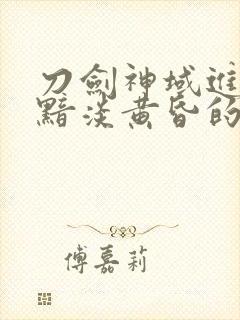 刀劍神域進
黯淡黃昏的
傅嘉莉